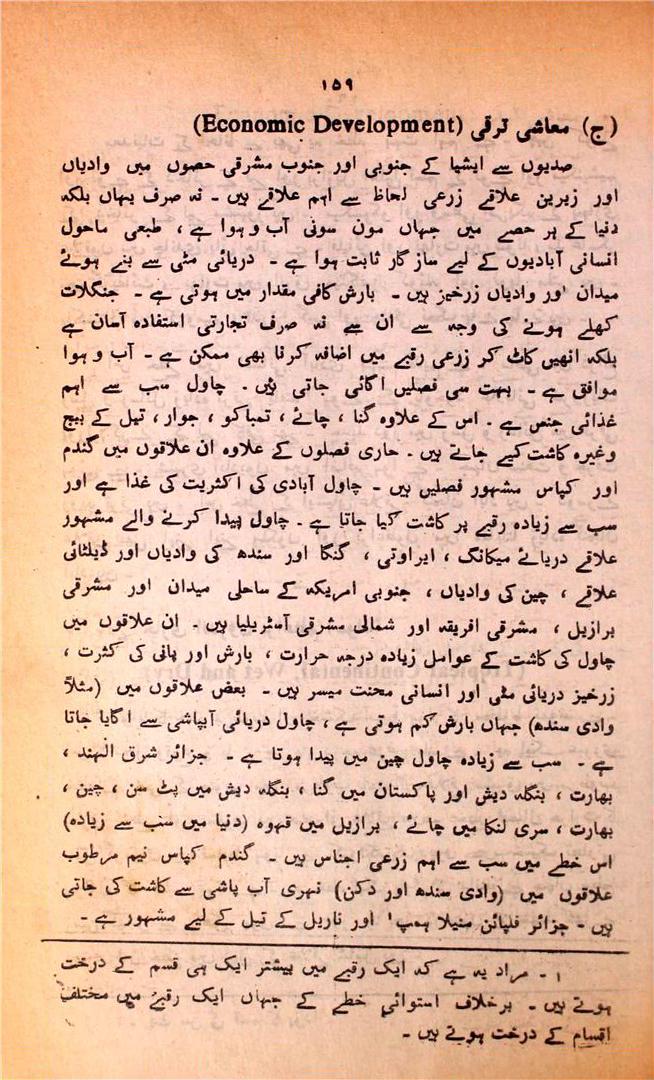 ۱۵۹
(ج) معاشی ترقی (Economic Development)
صدیوں سے ایشیا کے جنوبی اور جنوب مشرقی حصوں میں وادیاں
اور زیریں علاقے زرعی لحاظ سے اہم علاقے ہیں ۔ نہ صرف یہاں بلکہ
دنیا کے ہر حصے میں جہاں مون سونی آب و ہوا ہے ، طبعی ماحول
انسانی آبادیوں کے لیے ساز گار ثابت ہوا ہے ۔ دریائی مٹی سے بنے ہوئے
میدان اور وادیاں زرخیز ہیں ۔ بارش کافی مقدار میں ہوتی ہے ۔ جنگلات
کھلے ہونے کی وجہ سے ان سے نہ صرف تجارتی استفادہ آسان ہے
بلکہ انھیں کاٹ کر زرعی رقبے میں اضافہ کرنا بھی ممکن ہے ۔ آب و ہوا
موافق ہے ۔ بہت سی فصلیں اگائی جاتی ہیں ۔ چاول سب سے اہم
غذائی جنس ہے ۔ اس کے علاوہ گنا ، چائے ، تمباکو ، جوار ، تیل کے بیج
وغیرہ کاشت کیے جاتے ہیں ۔ حاری فصلوں کے علاوہ ان علاقوں میں گندم
اور کپاس مشہور فصلیں ہیں ۔ چاول آبادی کی اکثریت کی غذا ہے اور
سب سے زیادہ رقبے پر کاشت کیا جاتا ہے ۔ چاول پیدا کرنے والے مشہور
علاقے دریائے میکانگ ، ایراوتی ، گنگا اور سندھ کی وادیاں اور ڈیلٹائی
علاقے ، چین کی وادیاں ، جنوبی امریکہ کے ساحلی میدان اور مشرقی
برازیل ، مشرقی افریقہ اور شمالی مشرقی آسٹریلیا ہیں ۔ ان علاقوں میں
چاول کی کاشت کے عوامل زیادہ درجہ حرارت ، بارش اور پانی کی کثرت ،
زرخیز دریائی مٹی اور انسانی محنت میسر ہیں ۔ بعض علاقوں میں (مثلاً
وادی سندھ) جہاں بارش کم ہوتی ہے ، چاول دریائی آبپاشی سے اگایا جاتا
ہے ۔ سب سے زیادہ چاول چین میں پیدا ہوتا ہے ۔ جزائر شرق الہند ،
بھارت ، بنگلہ دیش اور پاکستان میں گنا ، بنگلہ دیش میں پٹ سن ، چین ،
بھارت ، سری لنکا میں چائے ، برازیل میں قہوہ (دنیا میں سب سے زیادہ)
اس خطے میں سب سے اہم زرعی اجناس ہیں ۔ گندم کپاس نیم مرطوب
علاقوں میں (وادی سندھ اور دکن) نہری آب پاشی سے کاشت کی جاتی
ہیں ۔ جزائر فلپائن منیلا ہمپ ' اور ناریل کے تیل کے لیے مشہور ہے ۔
۱ ۔ مراد یہ ہے کہ ایک رقبے میں بیشتر ایک ہی قسم کے درخت
ہوتے ہیں ۔ برخلاف استوائی خطے کے جہاں ایک رقبے میں مختلف
اقسام کے درخت ہوتے ہیں ۔